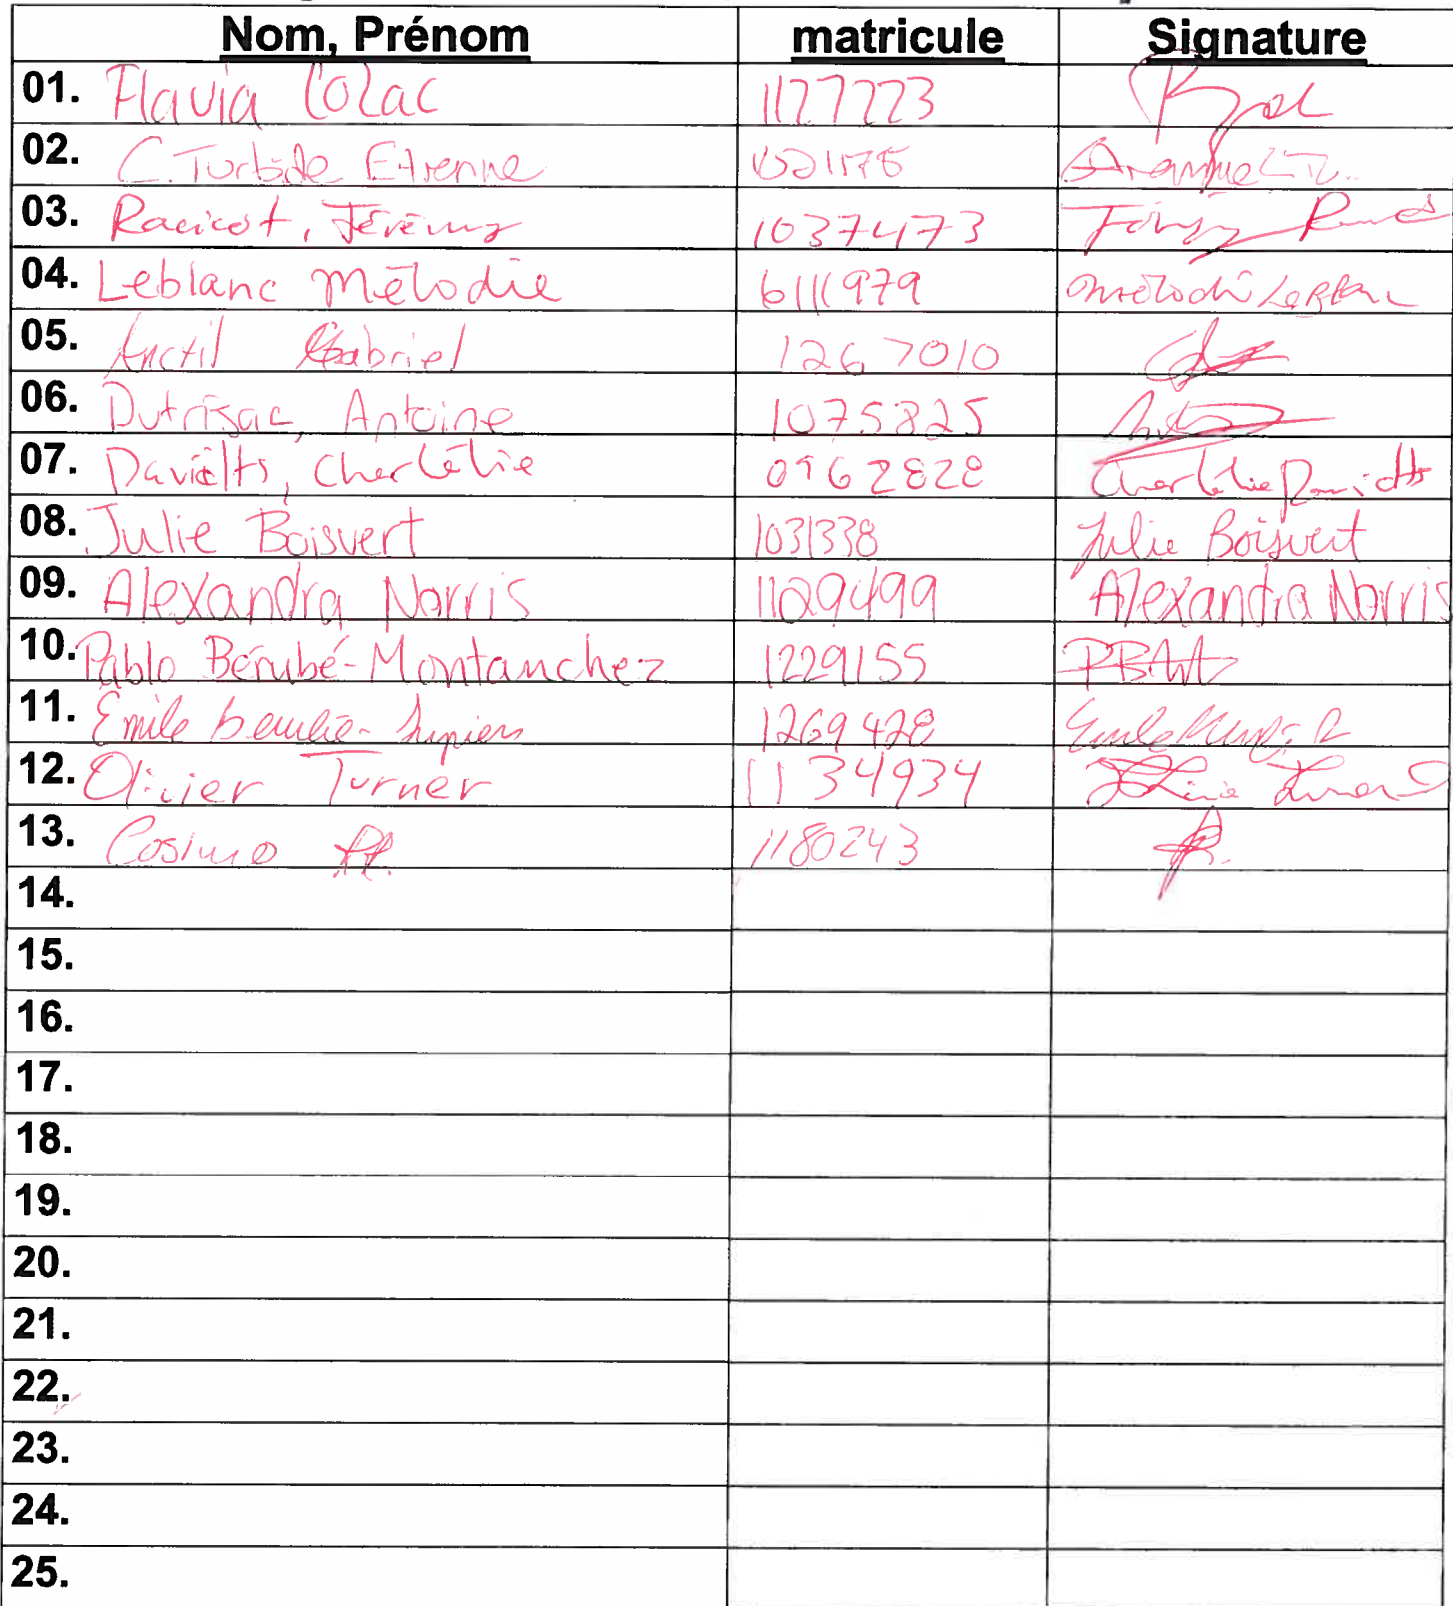 Nom, Prénom matricule Signature
01. Flavia Colac 1127223
02. C. Turbide Etienne
03. Racicot, Jérémy 10374173
04. Leblanc Mélodie 6111979 Mélodie Leblanc
05. Anctil Gabriel 1267010
06. Dutrisac, Antoine 1075825
07. Daviàlts, Charlélie 0962828 Charlélie
08. Julie Boisvert 1031338 Julie Boisvert
09. Alexandra Norris 11029499 Alexandra Norris
10. Pablo Bérubé-Montanchez 1229155
11. Émile 1269428
12. Olivier Turner 1134934
13. Cosimo 1180243
14.
15.
16.
17.
18.
19.
20.
21.
22.
23.
24.
25.